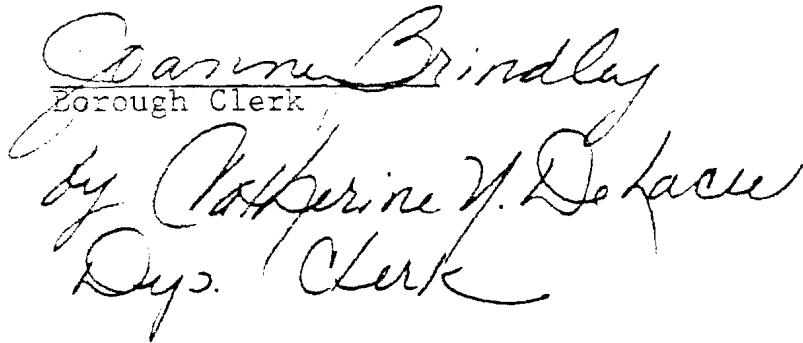 Joanne Brindley
Borough Clerk
by Catherine Y. DeLacee
Dep. Clerk